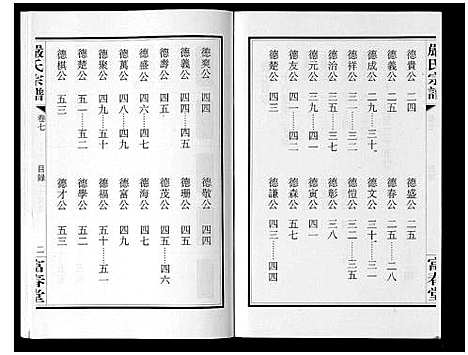 嚴氏宗譜 富春堂
德貴公 二四 德盛公 二五
德義公 二五 德春公 二五……二八
德成公 二九……三十 德文公 三十……三一
德祥公 三一……三二 德愷公 三二
德治公 德彰公 三八
德元公 三九……四一 德寅公 四一
德森公 五七
德楚公 德謙公 四三……四四
德爽公 四四 德敬公 四四
德義公 四四……四五 德珊公 四五
德壽公 四五 德茂公 四五……四六
德盛公 四六……四七 德海公 四七
德萬公 四八……四九 德富公 四九
德聚公 四九……五十 德福公 五十……五一
德楚公 五一……五二 德學公 五二
德棋公 五三 德才公 五三
嚴氏宗譜 卷七 目錄 二 富春堂